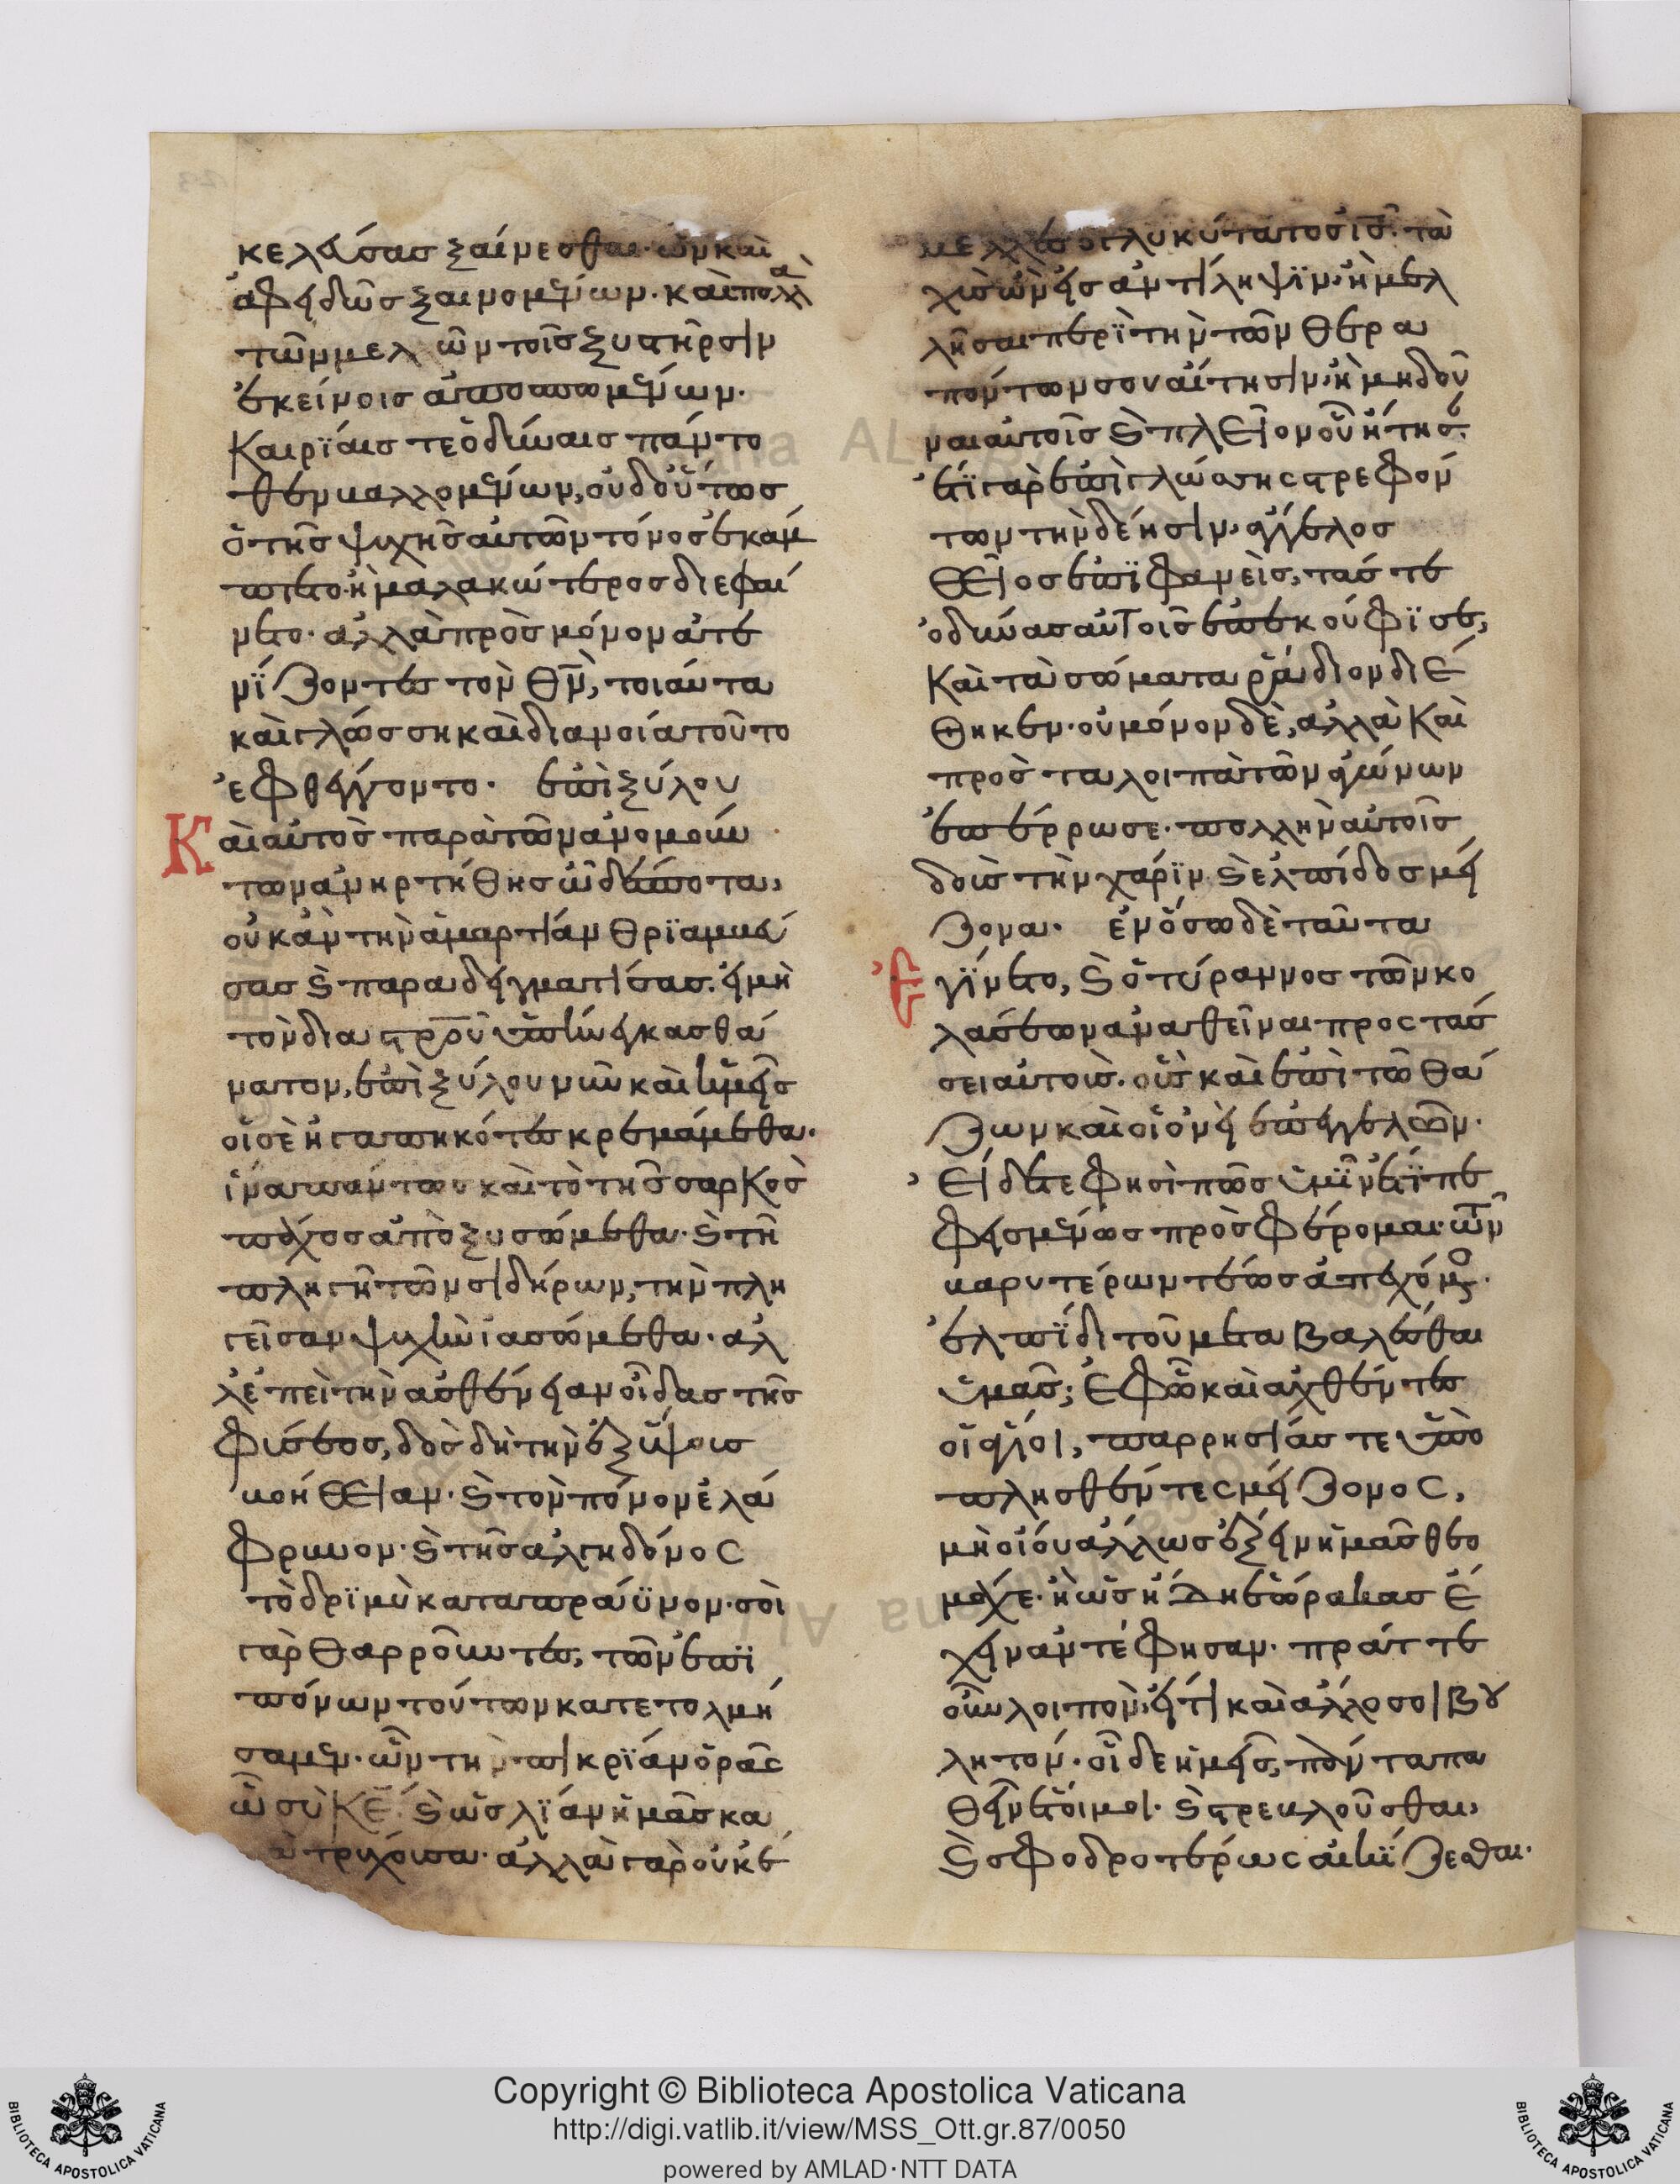 κελεύσας ξαίνεσθαι· ὧν καὶ
ἀφειδῶς ξαινομένων· καὶ πολλὰ
τῶν μελῶν τοῖς ξυστῆρσιν
ἐκείνοις ἀποσπωμένων·
καιρίαις τε ὀδύναις πάντο
θεν βαλλομένων, οὐδ' οὕτως
ὁ τῆς ψυχῆς αὐτῶν τόνος ἐκάμ
πτετο· ἢ μαλακώτερος διεφαί
νετο· ἀλλὰ πρὸς μόνον ἀτε
νίζοντες τὸν θν̅, τοιαῦτα
καὶ γλώσσῃ καὶ διανοίᾳ τοῦτο
ἐφθέγγοντο· ἐπὶ ξύλου
Καὶ αὐτὸς παρὰ τῶν ἀνομούν
των ἀνηρτήθης ὦ δέσποτα,
οὐκ ἂν τὴν ἁμαρτίαν θριαμβεύ
σας καὶ παραδειγματίσας· εἰ μὴ
τὸν διὰ στρου̅ ὑπήνεγκας θά
νατον, ἐπὶ ξύλου νῦν καὶ ἡμεῖς
οἱ σὲ ἠγαπηκότες κρεμάμεθα·
ἵνα πάντως καὶ τὸ τῆς σαρκὸς
πάχος ἀποξυσώμεθα· καὶ τῇ
πληγῇ τῶν σιδήρων, τὴν πλη
γεῖσαν ψυχὴν ἰασώμεθα· ἀλ
λ' ἐπεὶ τὴν ἀσθένειαν οἶδας τῆς
φύσεως, δὸς δὴ τὴν ἐξ ὕψους
βοήθειαν· καὶ τὸν πόνον ἐλά
φρυνον· καὶ τῆς ἀλγηδόνος
τὸ δριμὺ καταπράϋνον· σοὶ
γὰρ θαρροῦντες, τῶν ἐπὶ
πόνων τούτων κατετολμή
σαμεν· ὧν τὴν πικρίαν ὁρᾷς
ὦ σὺ κε̅· καὶ ὡς λίαν ἡμᾶς κα
τατρύχουσα· ἀλλὰ γὰρ οὐκ ἐ
μέλλησε γλυκύτατος ις̅· τα
χὺς ὢν εἰς ἀντίληψιν· ἢ μελ
λῆσαι περὶ τὴν τῶν θερα
πόντων σου αἴτησιν· ἢ μὴ δοῦ
ναι αὐτοῖς καὶ πλεῖον οὗ ᾔτησ·
ἔτι γὰρ ἐπὶ γλώσσης στρεφόν
των τὴν δέησιν, ἄγγελος
θεῖος ἐπιφανείς, τάς τε
ὀδύνας αὐτοῖς ἐπεκούφισε,
καὶ τὰ σώματα ῥᾴδιον διέ
θηκεν· οὐ μόνον δὲ, ἀλλὰ καὶ
πρὸς τὰ λοιπὰ τῶν ἀγώνων
ἐπέρρωσε· πολλὴν αὐτοῖς
δοὺς τὴν χάριν καὶ ἐλπίδος μεί
ζονα· ἐν ὅσῳ δὲ ταῦτα
ἐγίνετο, καὶ ὁ τύραννος τῶν κο
λάσεων ἀναθεῖναι προστάσ
σει αὐτούς· οἷς καὶ ἐπιτωθά
ζων καὶ οἱονεὶ ἐπεγγελῶν·
Εἴδετε φησὶ πῶς ὑμῖν ἔτι πε
φεισμένως προσφέρομαι· τῶν
βαρυτέρων τέως ἀπεχόμενος·
ἐλπίδι τοῦ μεταβαλέσθαι
ὑμᾶς; ἐφ' ᾧ καὶ ἀχθέντες
οἱ ἅγιοι, παρρησίας τε ὑπο
πλησθέντες μείζονος,
μὴ οἴου ἄλλως ἕξειν ἡμᾶς θεο
μάχε· ἢ ὡς ἤδη ἑώρακας ἔ
χειν ἀντέφησαν· πρᾶττε
οὖν λοιπὸν, εἴ τι καὶ ἄλλο σοι βου
λητόν· οἵδε ἡμεῖς, πᾶν τὰ πα
θεῖν ἕτοιμοι· καὶ στρεβλοῦσθαι,
καὶ σφοδροτέρως αἰκίζεσθαι·
Copyright © Biblioteca Apostolica Vaticana
http://digi.vatlib.it/view/MSS_Ott.gr.87/0050
powered by AMLAD·NTT DATA
BIBLIOTECA APOSTOLICA VATICANA
BIBLIOTECA APOSTOLICA VATICANA